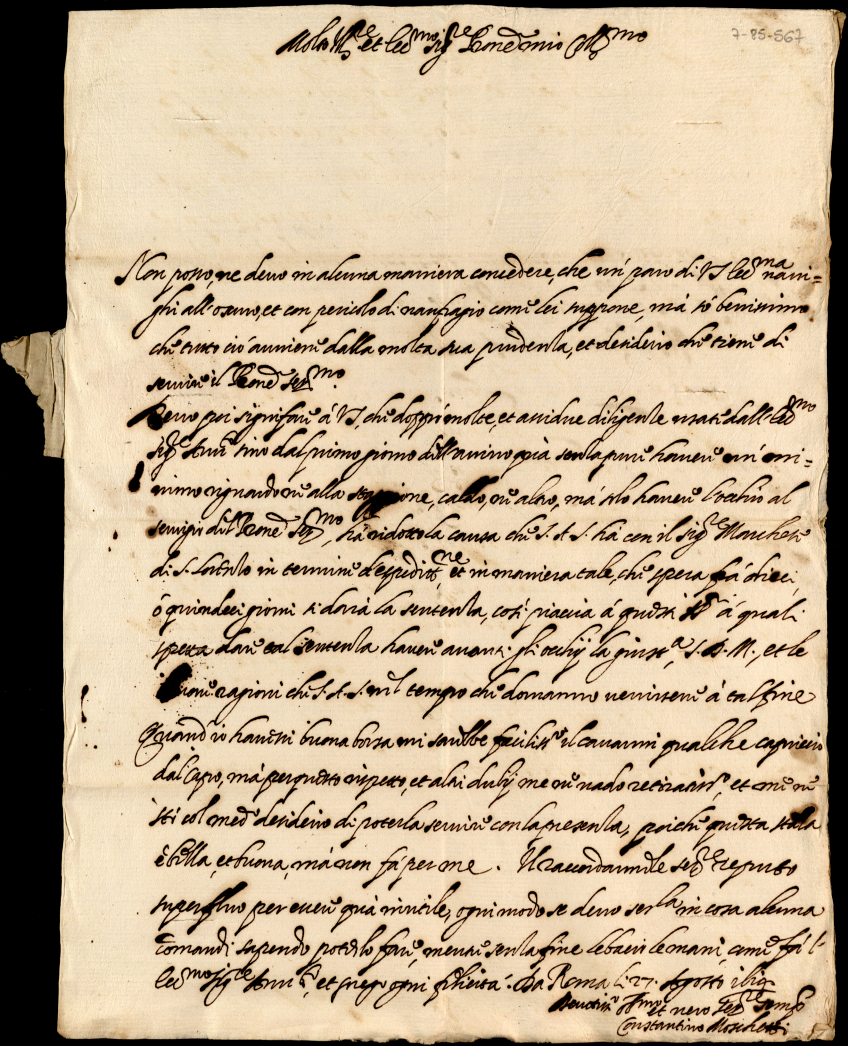 7-85-567
Molto Ill.re et Ecc.mo Sig.re Pron.e mio Oss.mo
Non posso, ne devo in alcuna maniera concedere, che un' paro di VS Ecc.ma navi=
ghi all'oscuro, et con pericolo di naufragio come lei suppone, mà sò benissimo
che tutto ciò avviene dalla molta sua prudenza, et desiderio che tiene di
servire il Pron.e Ser.mo
Devo poi significare à VS, che doppò molte, et assidue diligenze usate dall'Ecc.mo
Sig.r fino dal primo giorno dell'arrivo quà senza pure havere un' mi=
nimo riguardo ne alla staggione, caldo, ne altro, mà solo havere l'occhio al
servigio del Pron.e Ser.mo, hà ridotto la causa che S.A.S. hà con il Sig.re Marchese
di S. Lorenzo in termine d'espedit.ne, et in maniera tale, che spera frà dieci,
ò quindeci giorni si darà la sentenza, così piaccia à questi SS.ri à quali
spetta dare tal sentenza havere avanti gli occhij la giust.a, S.D.M., et le
buone ragioni che S.A.S. nel tempo che domanno venissene à tal fine
Quand'io havessi buona borsa mi sarebbe facilis.o il cavarmi qualche capriccio
dal capo, mà per questo rispetto, et altri dubij me ne vado retiratiss.o, et me ne
stò col med.o desiderio di poterla servire con la presenza, poiche questa stala
è bella, et buona, mà non fà per me. Il raccordarmele ser.re reputo
superfluo per essere quà inutile, ogni modo se devo ser.la in cosa alcuna
comandi sapendo poterlo fare, mentre senza fine le bacio le mani, come fà l'
Ecc.mo Sig.re et prego ogni felicità. Da Roma li 27. Agosto
et vero Ser.re sempre
Constantino Moschetti